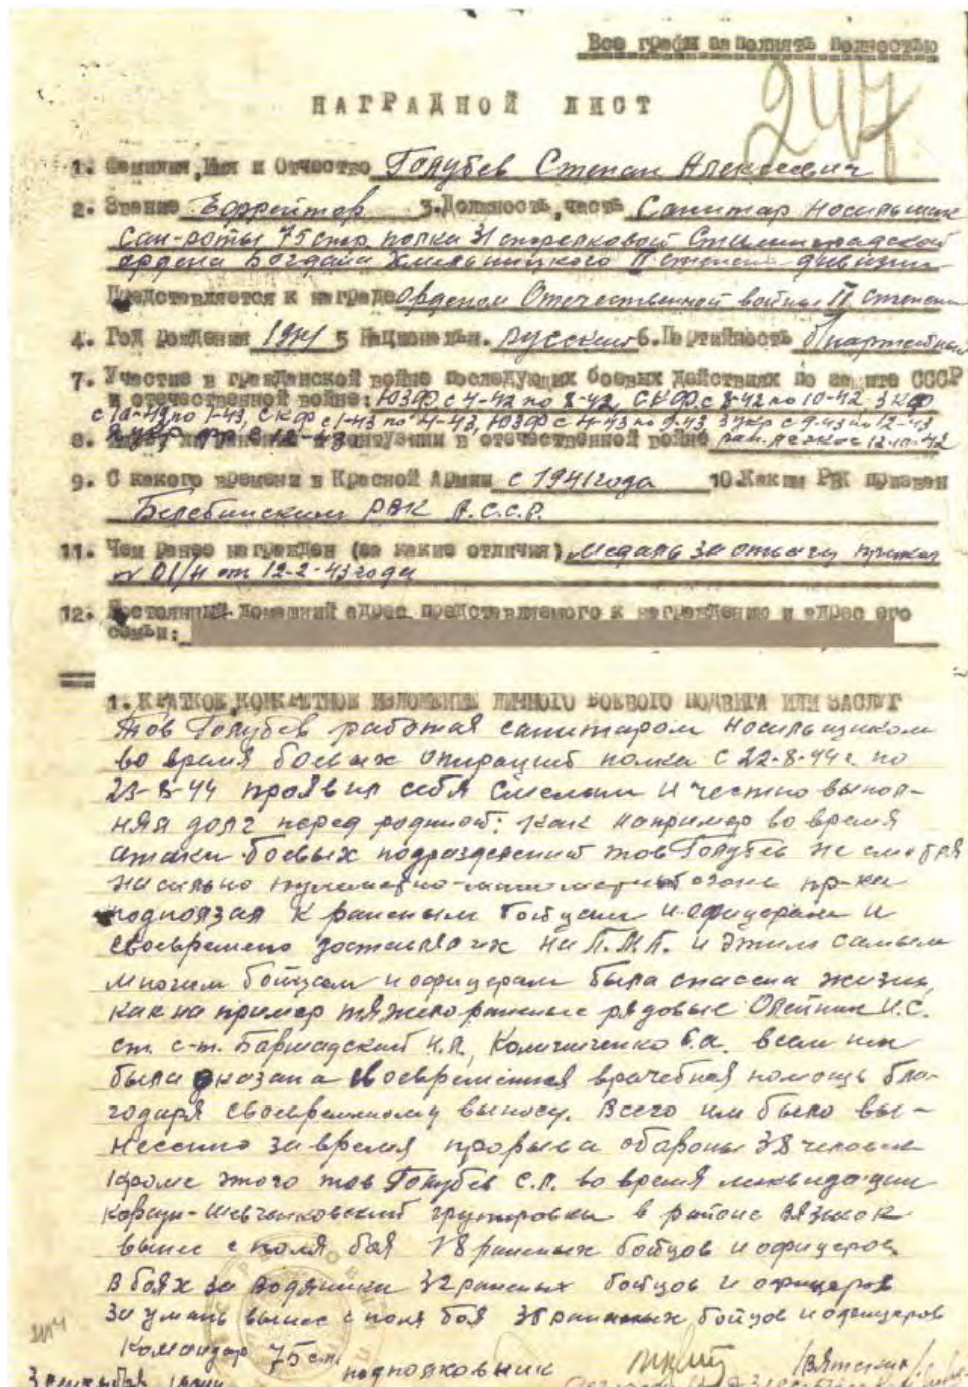 Все графы заполнять полностью
247
НАГРАДНОЙ ЛИСТ
1. Фамилия, Имя и Отчество Голубев Степан Алексеевич
2. Звание Ефрейтор 3. Должность, часть Санитар носильщик
сан-роты 75 стр. полка 31 стрелковой Сталинградской
ордена Богдана Хмельницкого II степени дивизии
Представляется к награде орденом Отечественной войны II степени
4. Год рождения 5 Национальн. русский 6. Партийность б/партейный
7. Участие в гражданской войне последующих боевых действиях по защите СССР
и отечественной войне: ЮЗФ с 4-42 по 8-42, СКФ с 8-42 по 10-42 ЗКФ
с 10-42 по 1-43, СКФ с 1-43 по 4-43, ЮЗФ с 4-43 по 9-43, 3 укр с 9-43 по 12-43
8. контузии в отечественной войне ран. легкое 12-10-42
9. С какого времени в Красной Армии с 1941 года 10. Каким РВК призван
Белебеинским РВК
11. Чем ранее награжден (за какие отличия) медаль за отвагу приказ
№ 01/н от 12-2-43 года
12. Постоянный домашний адрес представляемого к награждению и адрес его
семьи:
1. КРАТКОЕ, КОНКРЕТНОЕ ИЗЛОЖЕНИЕ ЛИЧНОГО БОЕВОГО ПОДВИГА ИЛИ ЗАСЛУГ
Тов Голубев работая санитаром носильщиком
во время боевых операций полка с 22-8-44 г. по
23-8-44 проявил себя смелым и честно выпол-
няя долг перед родиной: как например во время
атаки боевых подразделений тов Голубев не смотря
на сильно огонь пр-ка
подползал к раненым бойцам и офицерам и
своевремено доставлял их на П.М.П. и этим самым
многим бойцам и офицерам была спасена жизнь,
как на пример тяжело раненые рядовые Олейник И.С.
ст. с-т. Баршадский Н.Л., всем им
была оказана своевременная врачебная помощь бла-
годаря своевременному выносу. Всего им было вы-
несено за время прорыва обароны 38 человек
Кроме этого тов Голубев С.А. во время ликвидации
Корсун-Шевченковский групировки в районе Вязовок
вынес с поля боя 18 раненых бойцов и офицеров.
В боях за Водяники 32 раненых бойцов и офицеров
За Умань вынес с поля боя раненных бойцов и офицеров
Командир 75 сп.
подполковник